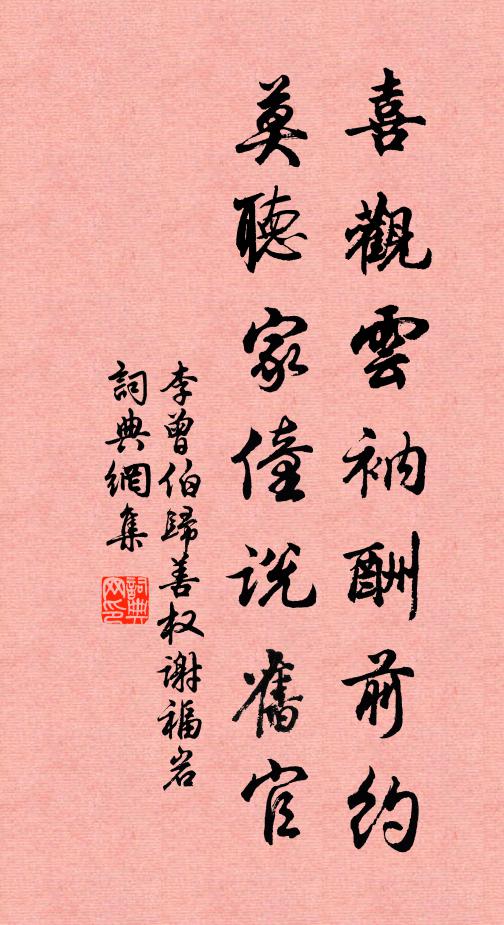 喜觀雲衲酬前約
莫聽家僮說舊官
李曾伯歸善权謝福岩
詞典網集
詞典網印